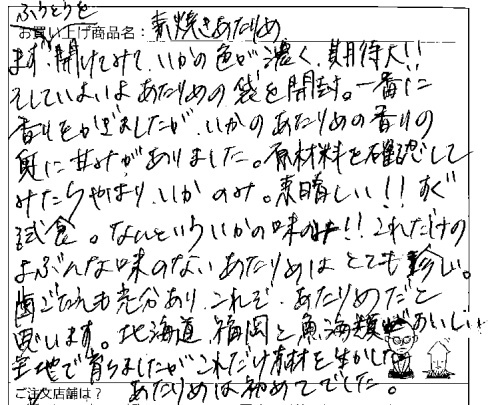 ふうとうを
お買い上げ商品名: 素焼きあたりめ
まず、開けてみて、いかの色が濃く、期待大!!
そしていよいよあたりめの袋を開封。一番に
香りをかぎましたが、いかのあたりめの香りの
奥に甘みがありました。原材料を確認して
みたらやはり、いかのみ。素晴しい!!すぐ
試食。なんといういかの味!!これだけの
よぶんな味のないあたりめはとても珍しい。
歯ごたえも充分あり、これぞ、あたりめだと
思います。北海道、福岡と魚海類がおいしい
土地で育ちましたがこれだけ素材を生かした
あたりめは初めてでした。
ご注文店舗は?